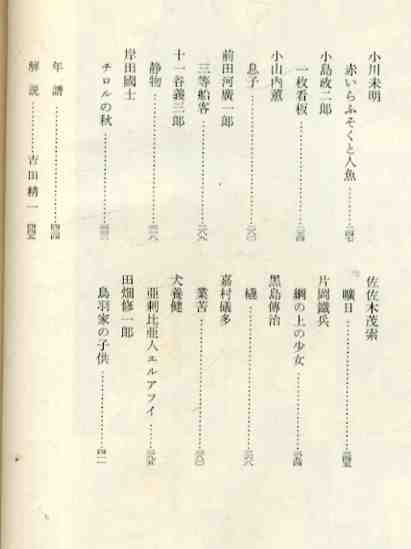 小川未明
赤いらふそくと人魚…………
小島政二郎
一枚看板…………
小山内薫
息子…………
前田河廣一郎
三等船客…………
十一谷義三郎
静物…………
岸田國士
チロルの秋…………
年譜…………
解説…………吉田精一
佐佐木茂索
曠日…………
片岡鐵兵
綱の上の少女…………
黑島傳治
橇…………
嘉村礒多
業苦…………
犬養健
亞剌比亜人エルアフイ……
田畑修一郎
鳥羽家の子供…………